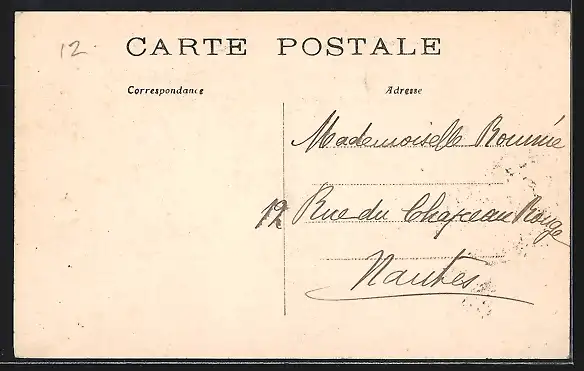 12
CARTE POSTALE
Correspondance
Adresse
Mademoiselle
12 Rue du Chapeau Rouge
Nantes